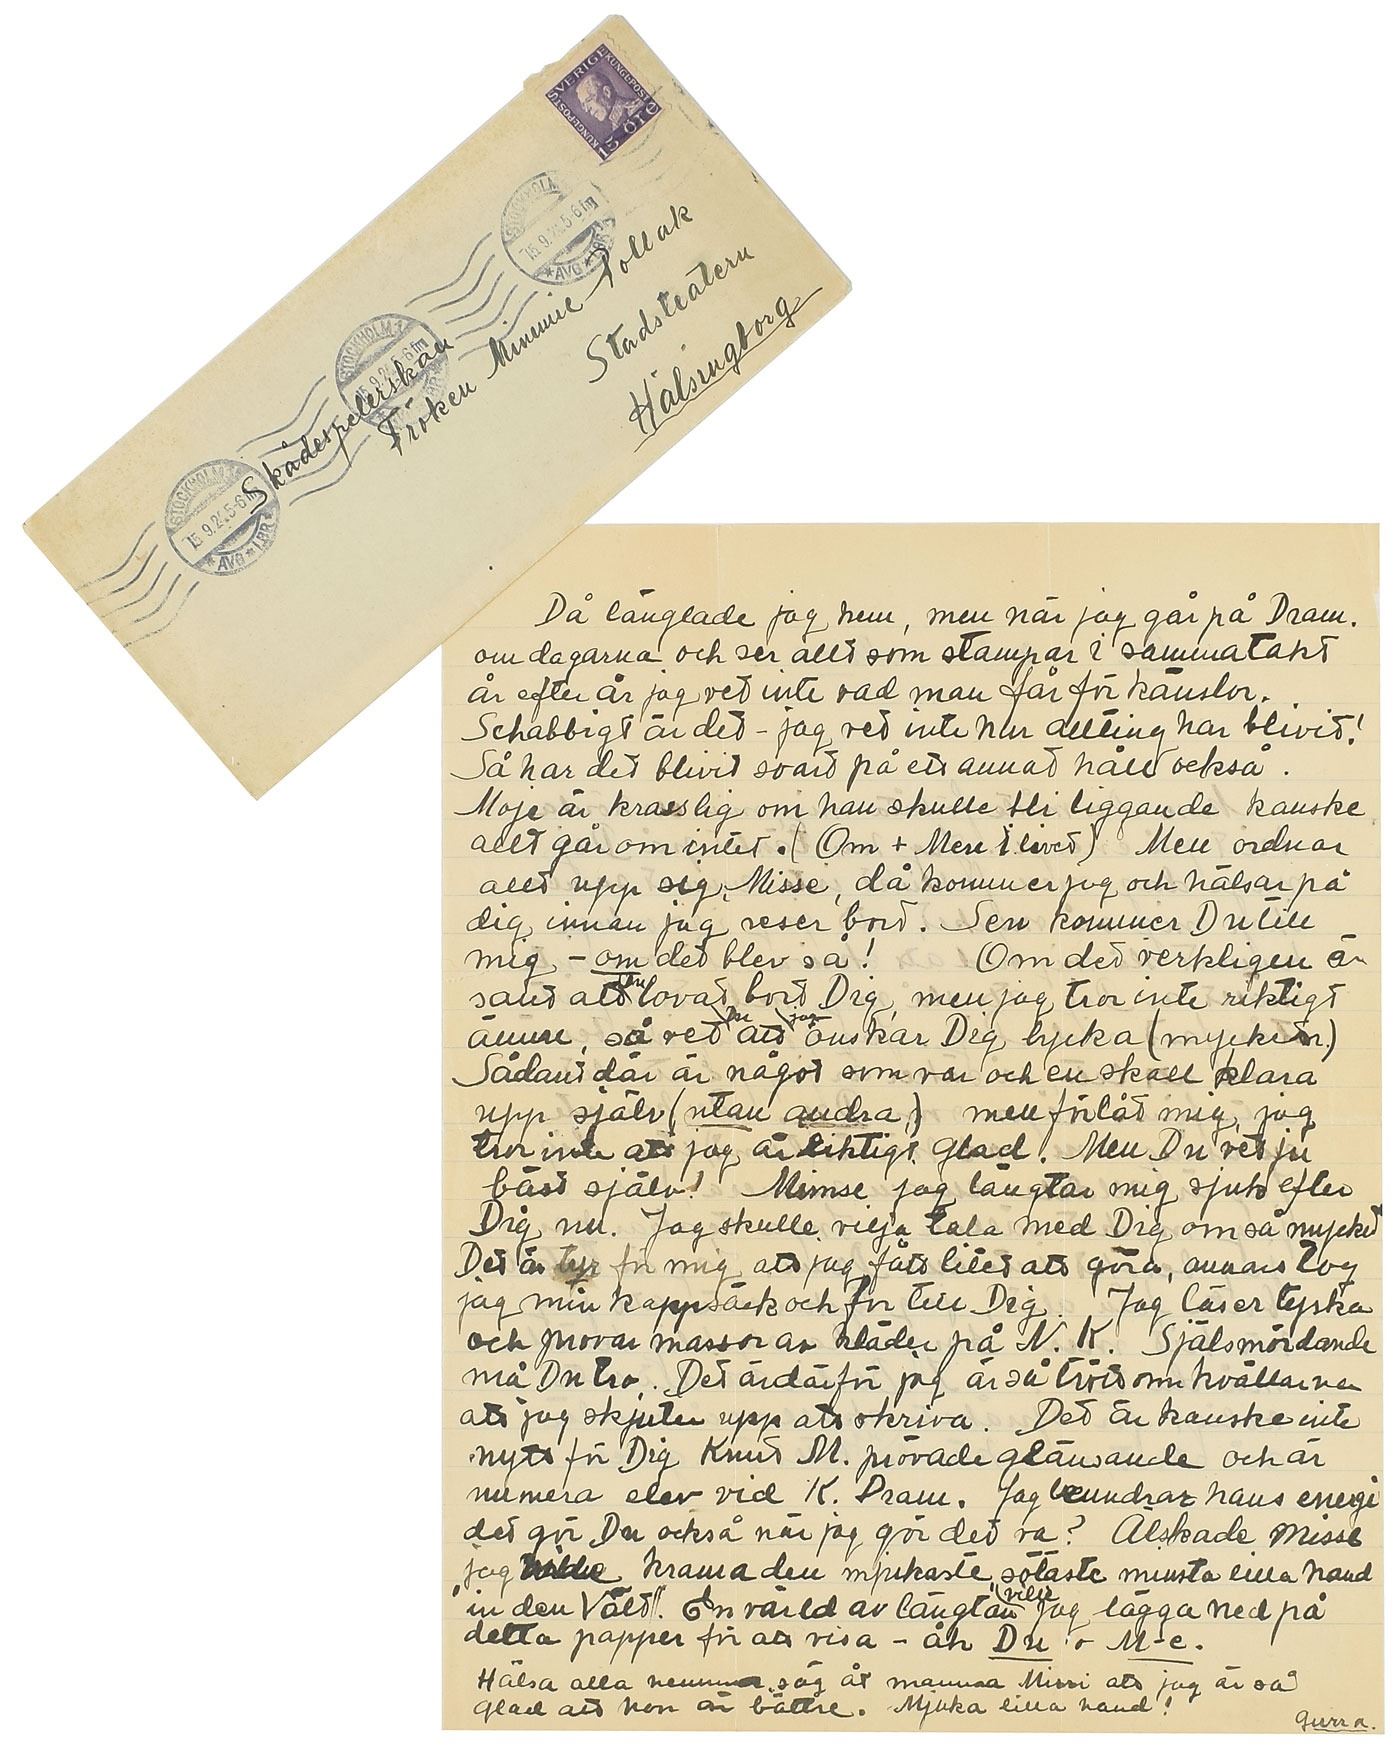 SVERIGE
KUNGLPOST
KUNGLPOST
15 ÖRE
STOCKHOLM 1
15.9.2 5-6 fm
★ AVG ★ LBR
STOCKHOLM 1
15.9.2 5-6 fm
STOCKHOLM 1
15.9.2 5-6 fm
★ AVG ★ LBR ★
Skådespelerskan
Fröken Mimmie Pollak
Stadsteatern
Hälsingborg
Då länglade jag hem, men när jag går på Dram.
om dagarna och ser allt som stampar i samma takt
år efter år jag vet inte vad man får för känslor.
Schabbigt är det – jag vet inte hur allting har blivit!
Så har det blivit svart på ett annat håll också.
Moje är krasslig om han skulle bli liggande kanske
allt går om intet. (Om + Men i livet) Men ordnar
allt upp sig, Misse, då kommer jag och hälsar på
dig innan jag reser bort. Sen kommer Du till
mig – om det blev så! Om det verkligen är
sant att Du lovat bort Dig, men jag tror inte riktigt
ännu, så vet Du att jag önskar Dig lycka (mycken)
Sådant där är något som var och en skall klara
upp själv (utan andra,) men förlåt mig, jag
tror inte att jag är riktigt glad. Men Du vet ju
bäst själv! Mimse jag längtar mig sjuk efter
Dig nu. Jag skulle vilja tala med Dig om så mycket
Det är tyr för mig att jag fått litet att göra, annars tog
jag min kappsäck och for till Dig. Jag läser tyska
och provar massor av kläder på N. K. Själsmördande
må Du tro. Det är därför jag är så trött om kvällarna
att jag skjuter upp att skriva. Det är kanske inte
nytt för Dig Knut M. prövade glänsande och är
numera elev vid K. Dram. Jag beundrar hans energi
det gör Du också när jag gör det va? Älskade Misse
jag krama den mjukaste sötaste minsta lilla hand
"in den Vält". En värld av längtan ville jag lägga ned på
detta papper för att visa – åh Du o M-e.
Hälsa alla hemma, säg åt mamma Mimi att jag är så
glad att hon är bättre. Mjuka lilla hand!
Gurra.